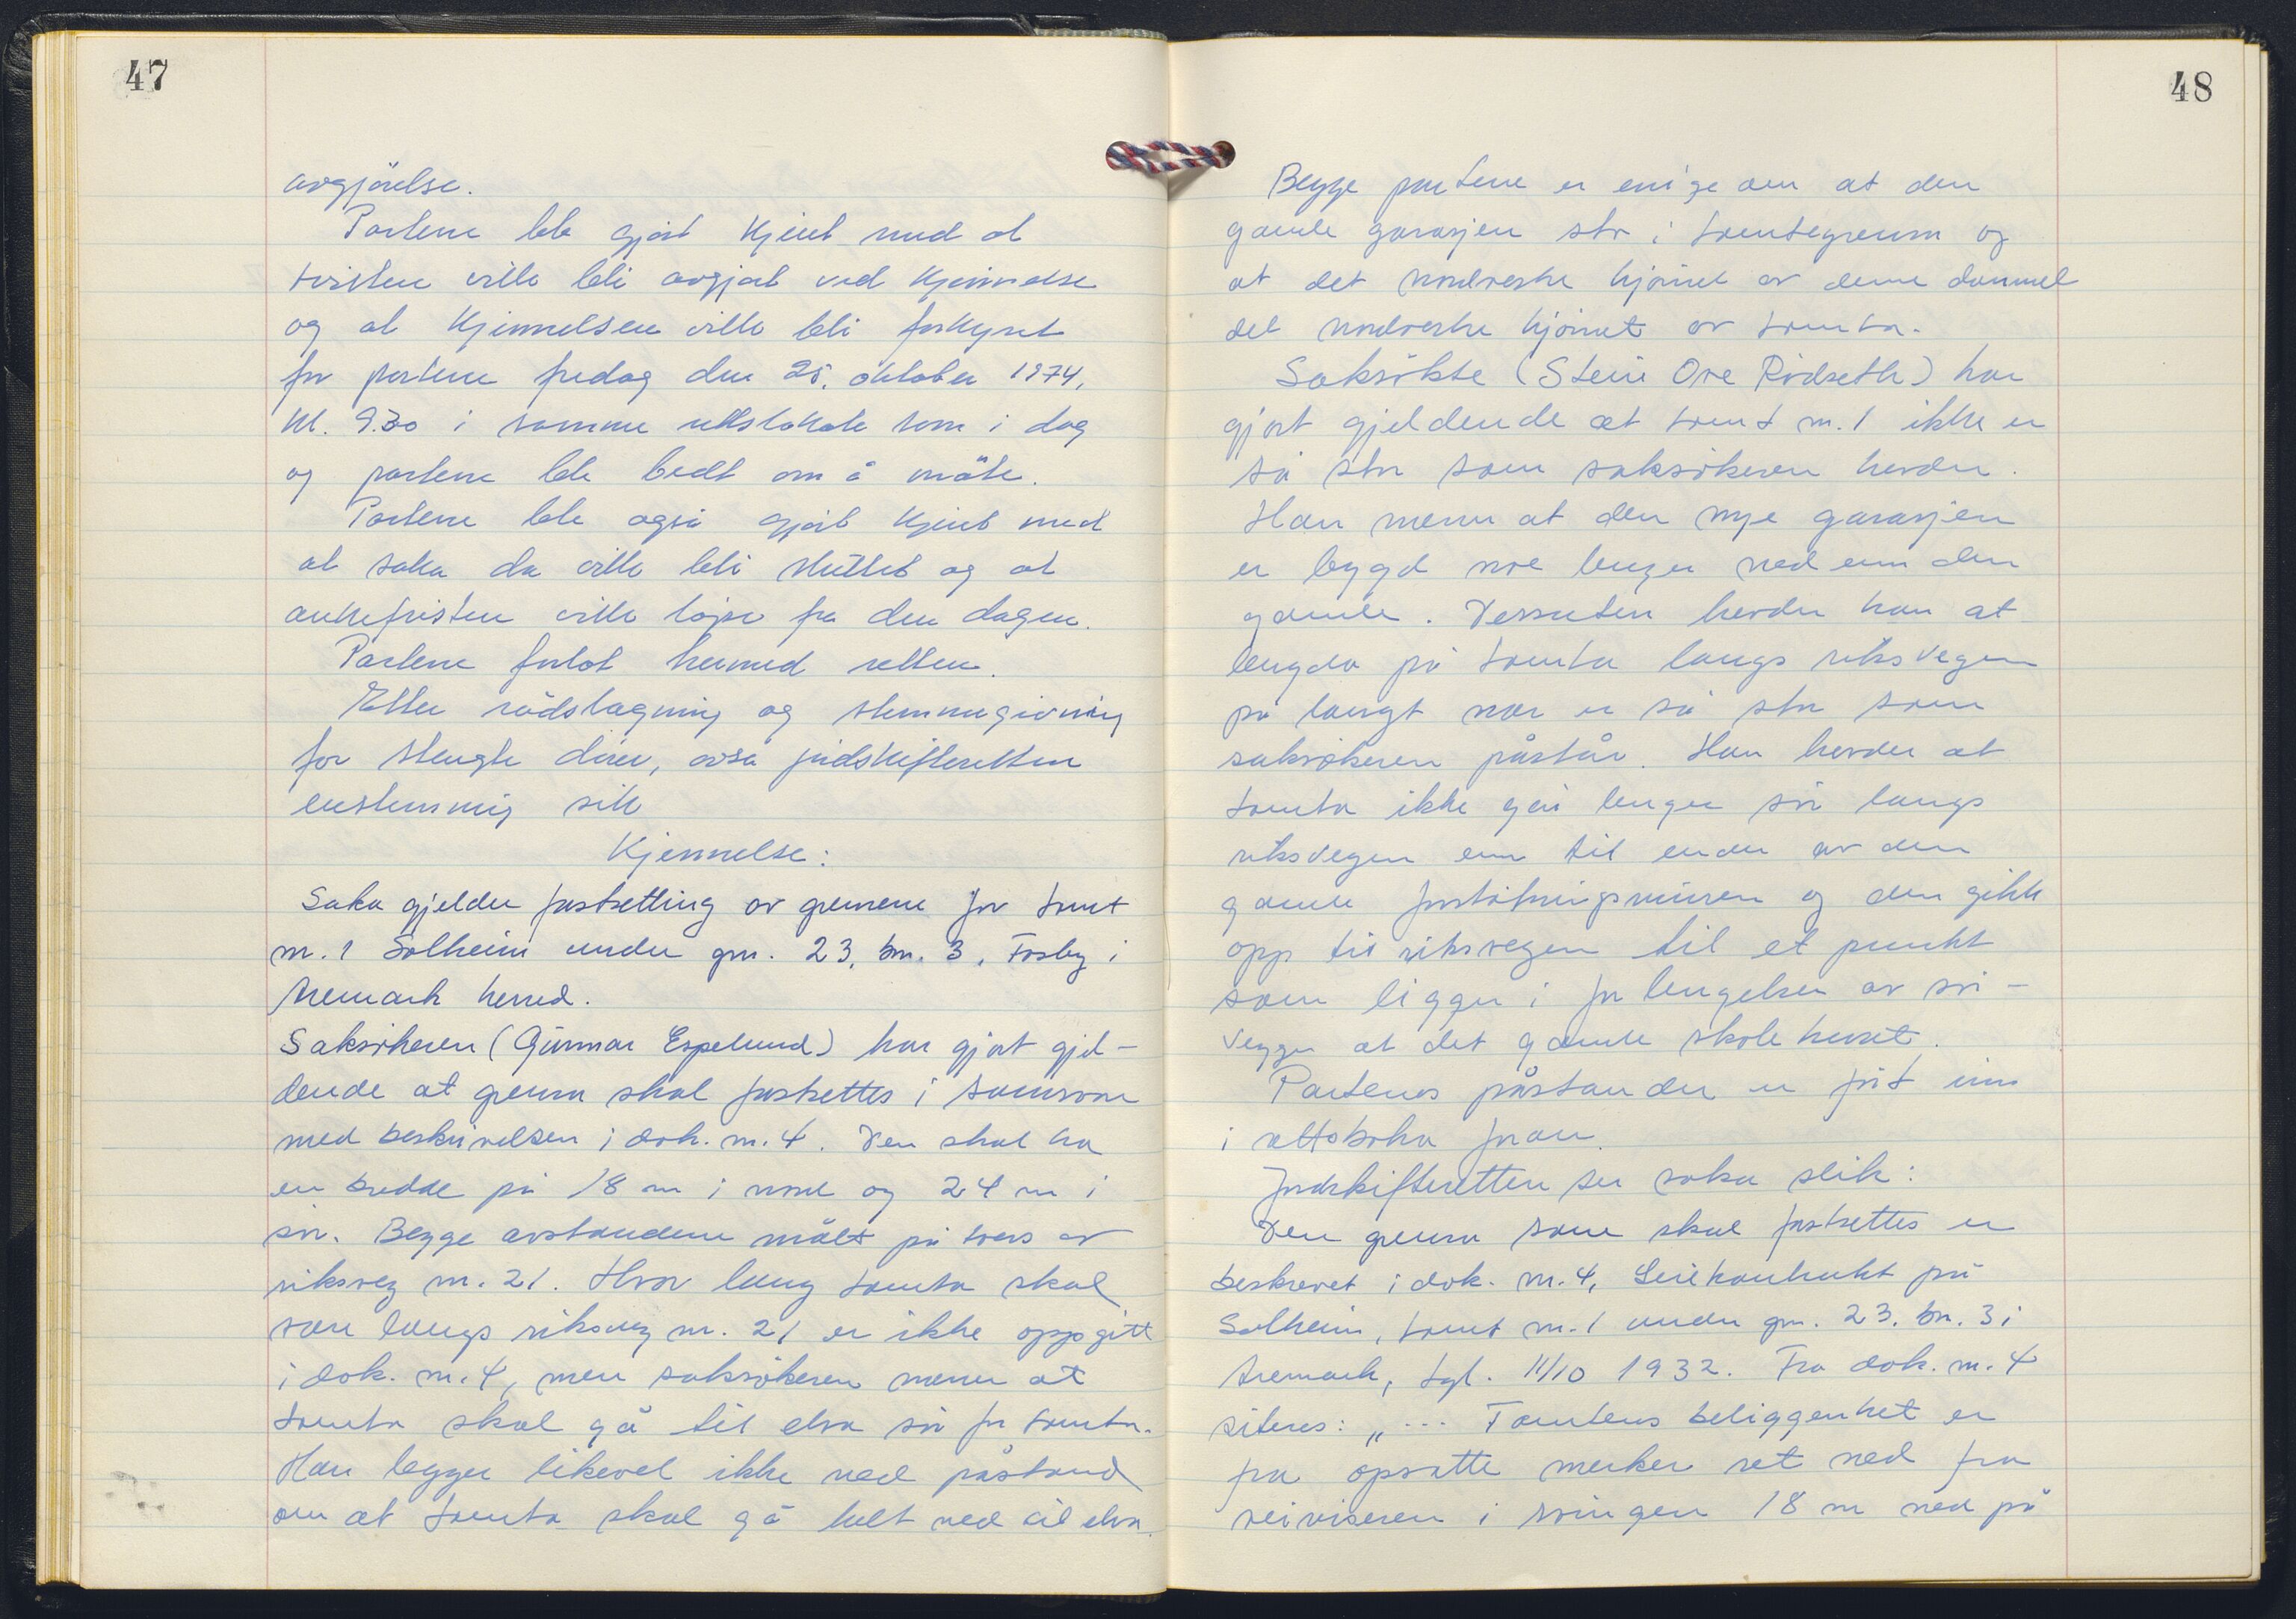 47
avgjörelse.
Partene ble gjort kjent med at
tvisten ville bli avgjort ved kjennelse
og at kjennelsen ville bli forkynt
for partene fredag den 25. oktober 1974,
kl. 9.30 i samme rettslokale som i dag
og partene ble bedt om å möte.
Partene ble også gjort kjent med
at saka da ville bli sluttet og at
ankefristen ville löpe fra den dagen.
Partene forlot hermed retten.
Etter rådslagning og stemmegivning
for stengte dörer, avsa jordskifteretten
enstemmig slik
Kjennelse:
Saka gjelder fastsetting av grensene for tomt
nr. 1 Solheim under gnr. 23, bnr. 3, Fosby i
Aremark herred.
Saksökeren (Gunnar Espelund) har gjort gjel-
dende at grensa skal fastsettes i samsvar
med beskrivelsen i dok. nr. 4. Den skal ha
en bredde på 18 m i nord og 24 m i
sör. Begge avstandene målt på tvers av
riksveg nr. 21. Hvor lang tomta skal
være langs riksveg nr. 21 er ikke oppgitt
i dok. nr. 4, men saksökeren mener at
tomta skal gå til elva sör for tomta.
Han legger likevel ikke ned påstand
om at tomta skal gå helt ned til elva.
48
Begge partene er enige om at den
gamle garasjen står i tomtegrensa og
at det nordvestre hjörnet av denne dannet
det nordvestre hjörnet av tomta.
Saksökte (Stein Ove Rödseth) har
gjort gjeldende at tomt nr. 1 ikke er
så stor som saksökeren hevder.
Han mener at den nye garasjen
er bygd noe lenger ned enn den
gamle. Dessuten hevder han at
lengda på tomta langs riksvegen
på langt nær er så stor som
saksökeren påstår. Han hevder at
tomta ikke går lenger sör langs
riksvegen enn til enden av den
gamle forstötningsmuren og den gikk
opp til riksvegen til et punkt
som ligger i forlengelsen av sör-
veggen at det gamle skolehuset.
Partenes påstander er fört inn
i rettsboka foran.
Jordskifteretten ser saka slik:
Den grensa som skal fastsettes er
beskrevet i dok. nr. 4, Leiekontrakt på
Solheim, tomt nr. 1 under gnr. 23, bnr. 3 i
Aremark, tgl. 11/10 1932. Fra dok. nr. 4
siteres: „... Tomtens beliggenhet er
fra opsatte merker ret ned fra
veiviseren i svingen 18 m ned på